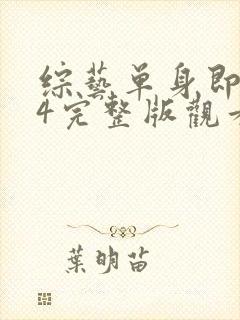 综藝单身即
4完整版觀
葉明苗